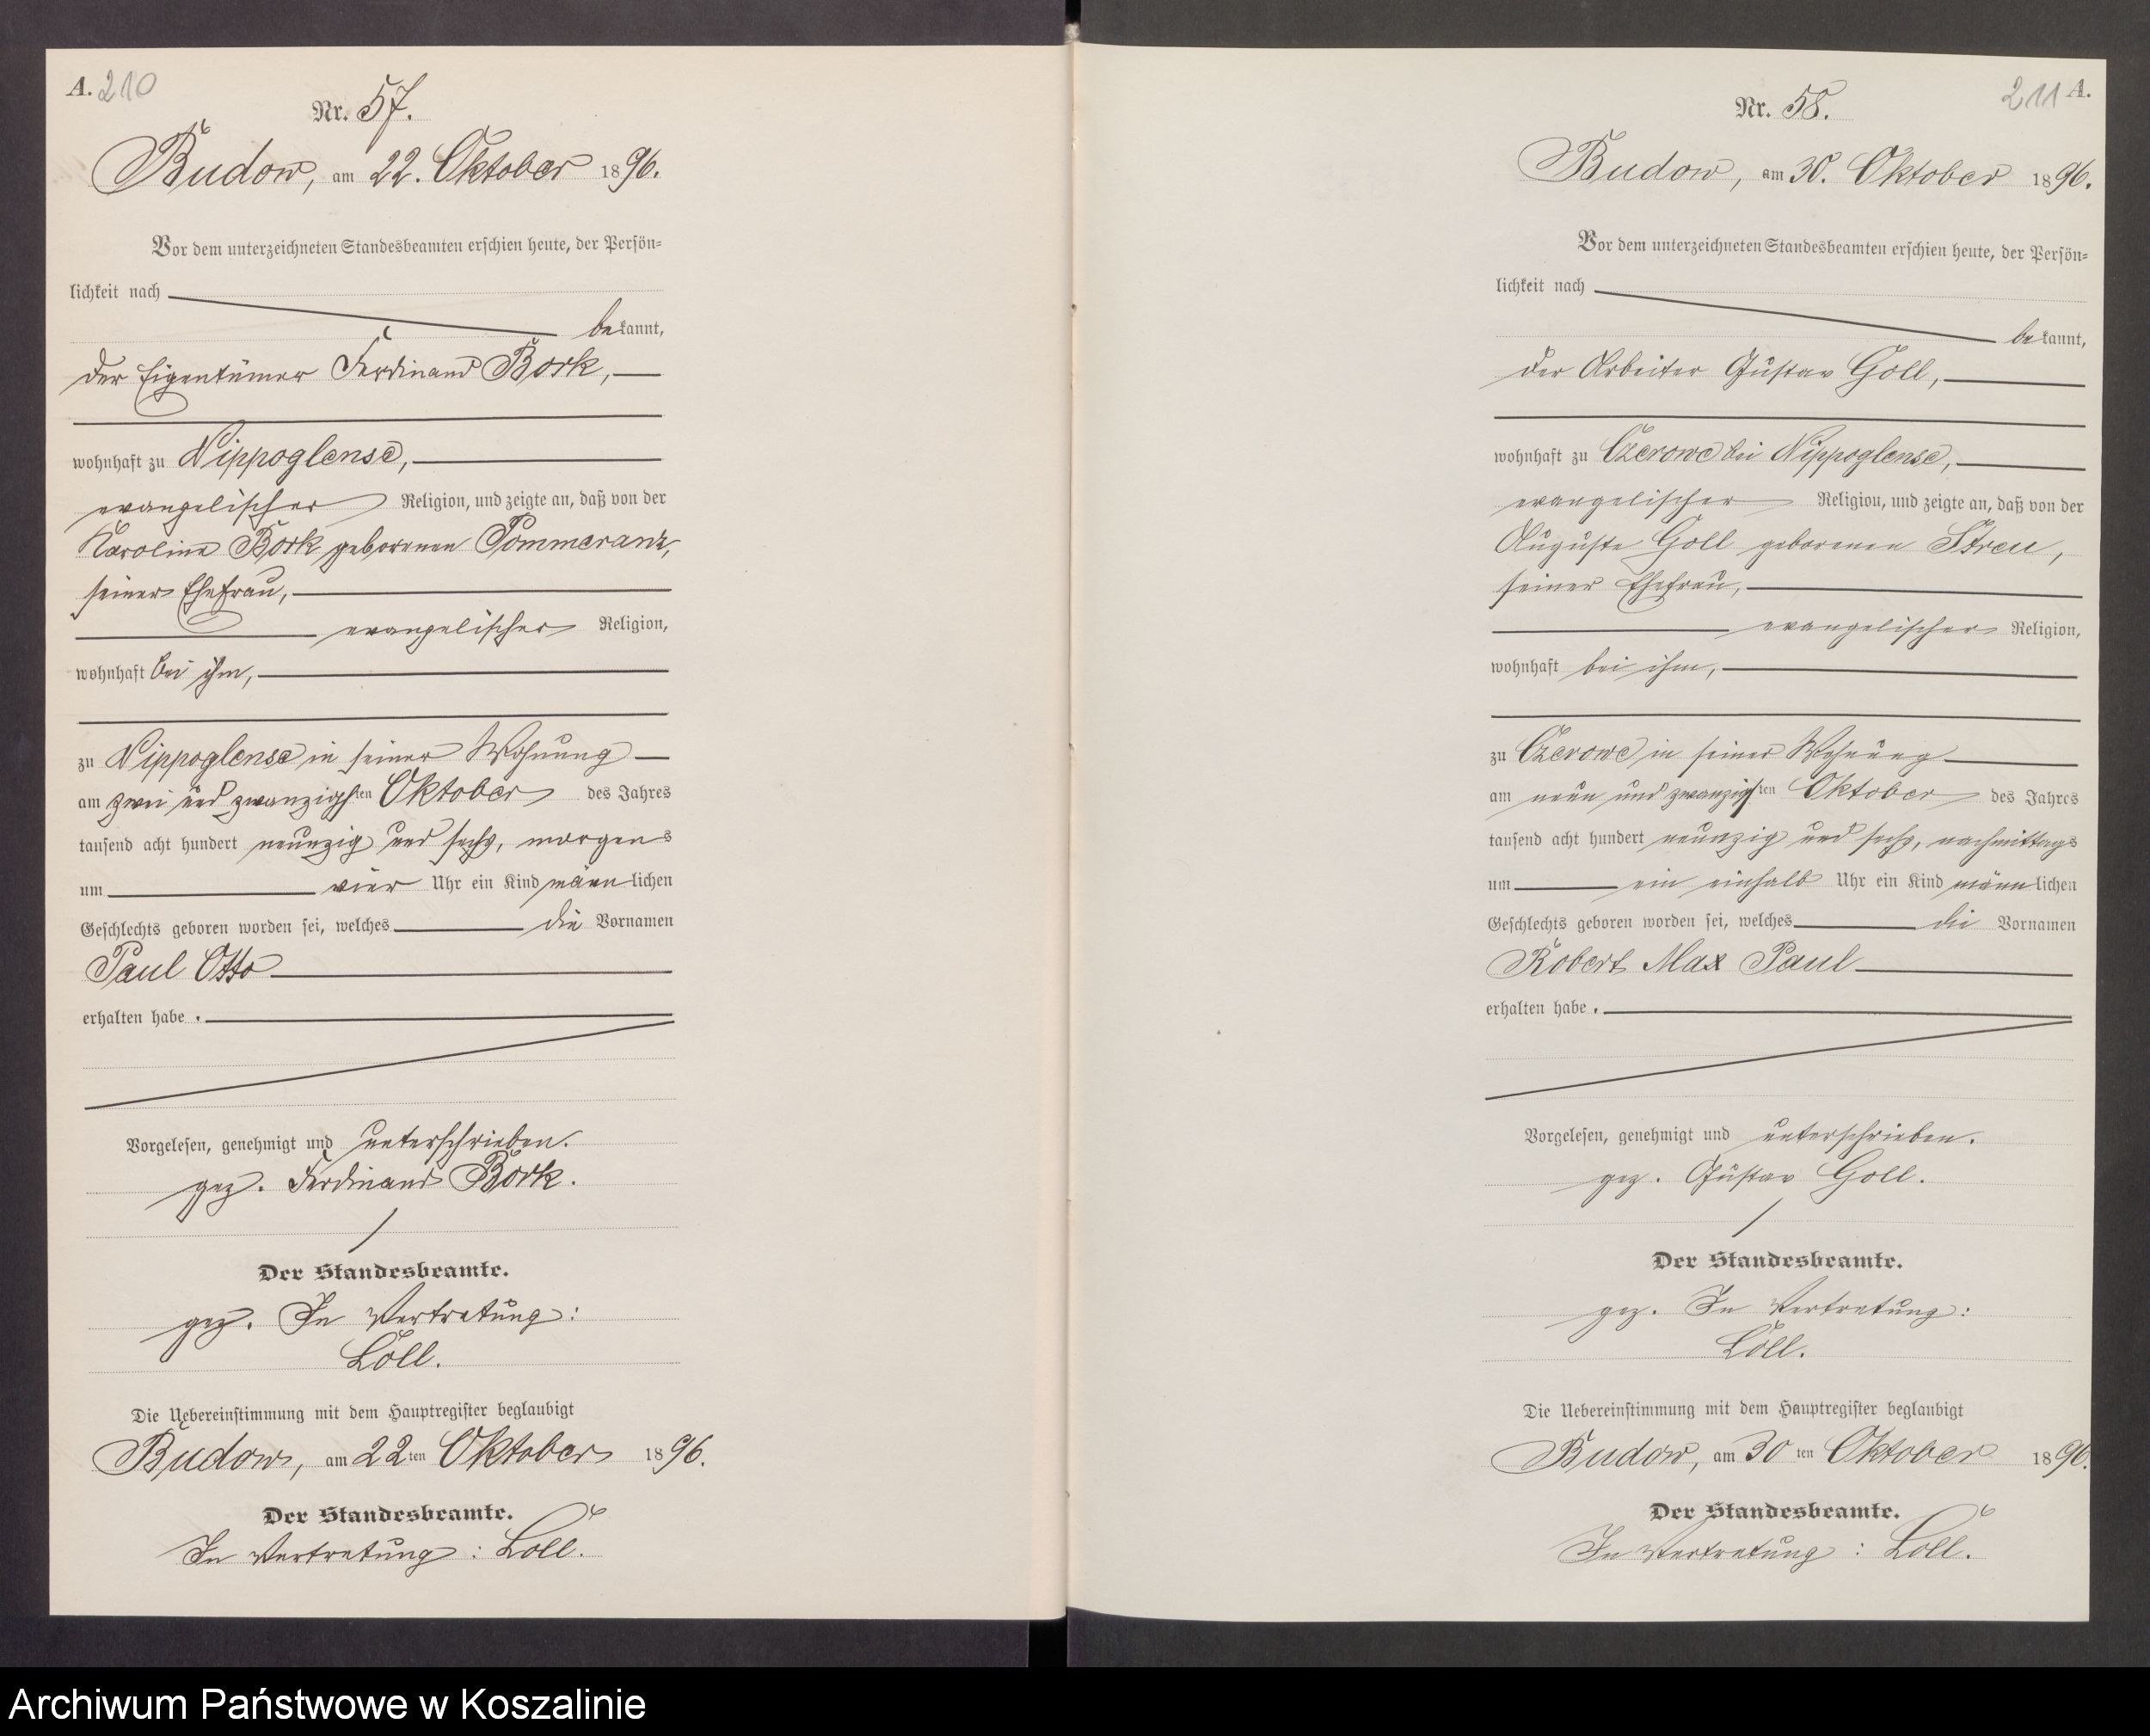 A. 210
Nr. 57.
Budow, am 22. Oktober 1896.
Vor dem unterzeichneten Standesbeamten erschien heute, der Persön=
lichkeit nach
bekannt,
der Eigentümer Ferdinand Bork,
wohnhaft zu Nippoglense,
evangelischer Religion, und zeigte an, daß von der
Karoline Bork geborenen Pommeranz,
seiner Ehefrau,
evangelischer Religion,
wohnhaft bei ihm,
zu Nippoglense in seiner Wohnung
am zwei und zwanzigsten Oktober des Jahres
tausend acht hundert neunzig und sechs, morgens
um vier Uhr ein Kind männlichen
Geschlechts geboren worden sei, welches die Vornamen
Paul Otto
erhalten habe.
Vorgelesen, genehmigt und unterschrieben.
gez. Ferdinand Bork.
Der Standesbeamte.
gez. In Vertretung:
Loll.
Die Uebereinstimmung mit dem Hauptregister beglaubigt
Budow, am 22ten Oktober 1896.
Der Standesbeamte.
In Vertretung: Loll.
211 A.
Nr. 58.
Budow, am 30. Oktober 1896.
Vor dem unterzeichneten Standesbeamten erschien heute, der Persön=
lichkeit nach
bekannt,
der Arbeiter Gustav Goll,
wohnhaft zu Czerowe bei Nippoglense,
evangelischer Religion, und zeigte an, daß von der
Auguste Goll geborenen Streu,
seiner Ehefrau,
evangelischer Religion,
wohnhaft bei ihm,
zu Czerowe in seiner Wohnung
am neun und zwanzigsten Oktober des Jahres
tausend acht hundert neunzig und sechs, nachmittags
um ein einhalb Uhr ein Kind männlichen
Geschlechts geboren worden sei, welches die Vornamen
Robert Max Paul
erhalten habe.
Vorgelesen, genehmigt und unterschrieben.
gez. Gustav Goll.
Der Standesbeamte.
gez. In Vertretung:
Loll.
Die Uebereinstimmung mit dem Hauptregister beglaubigt
Budow, am 30ten Oktober 1896.
Der Standesbeamte.
In Vertretung: Loll.
Archiwum Państwowe w Koszalinie